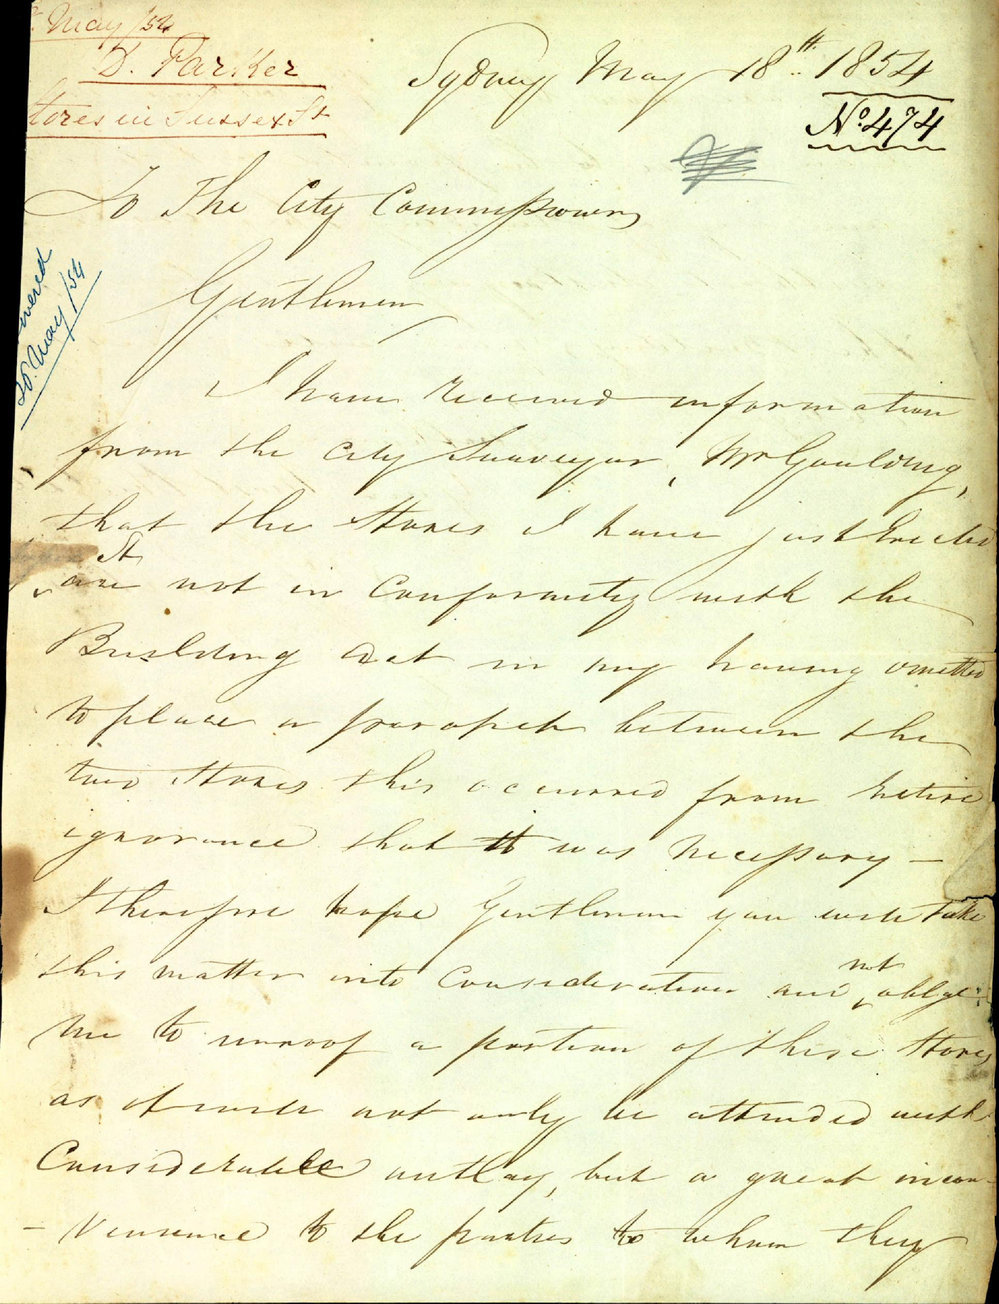 May /54
D. Parker
Stores in Sussex St
Sydney May 18th. 1854
No. 474
To The City Commissioners
20. May /54
Gentlemen
I have received information
from the City Surveyor, Mr Goulding,
that the Stores I have just Erected
St
are not in Conformity with the
Building Act in my having omitted
to place a parapet between the
two Stores this occurred from Entire
ignorance that it was necessary —
I therefore hope Gentlemen you will take
this matter into Consideration and not oblige
me to unroof a portion of these Stores
as it will not only be attended with
Considerable outlay, but a great incon-
- venience to the parties to whom they